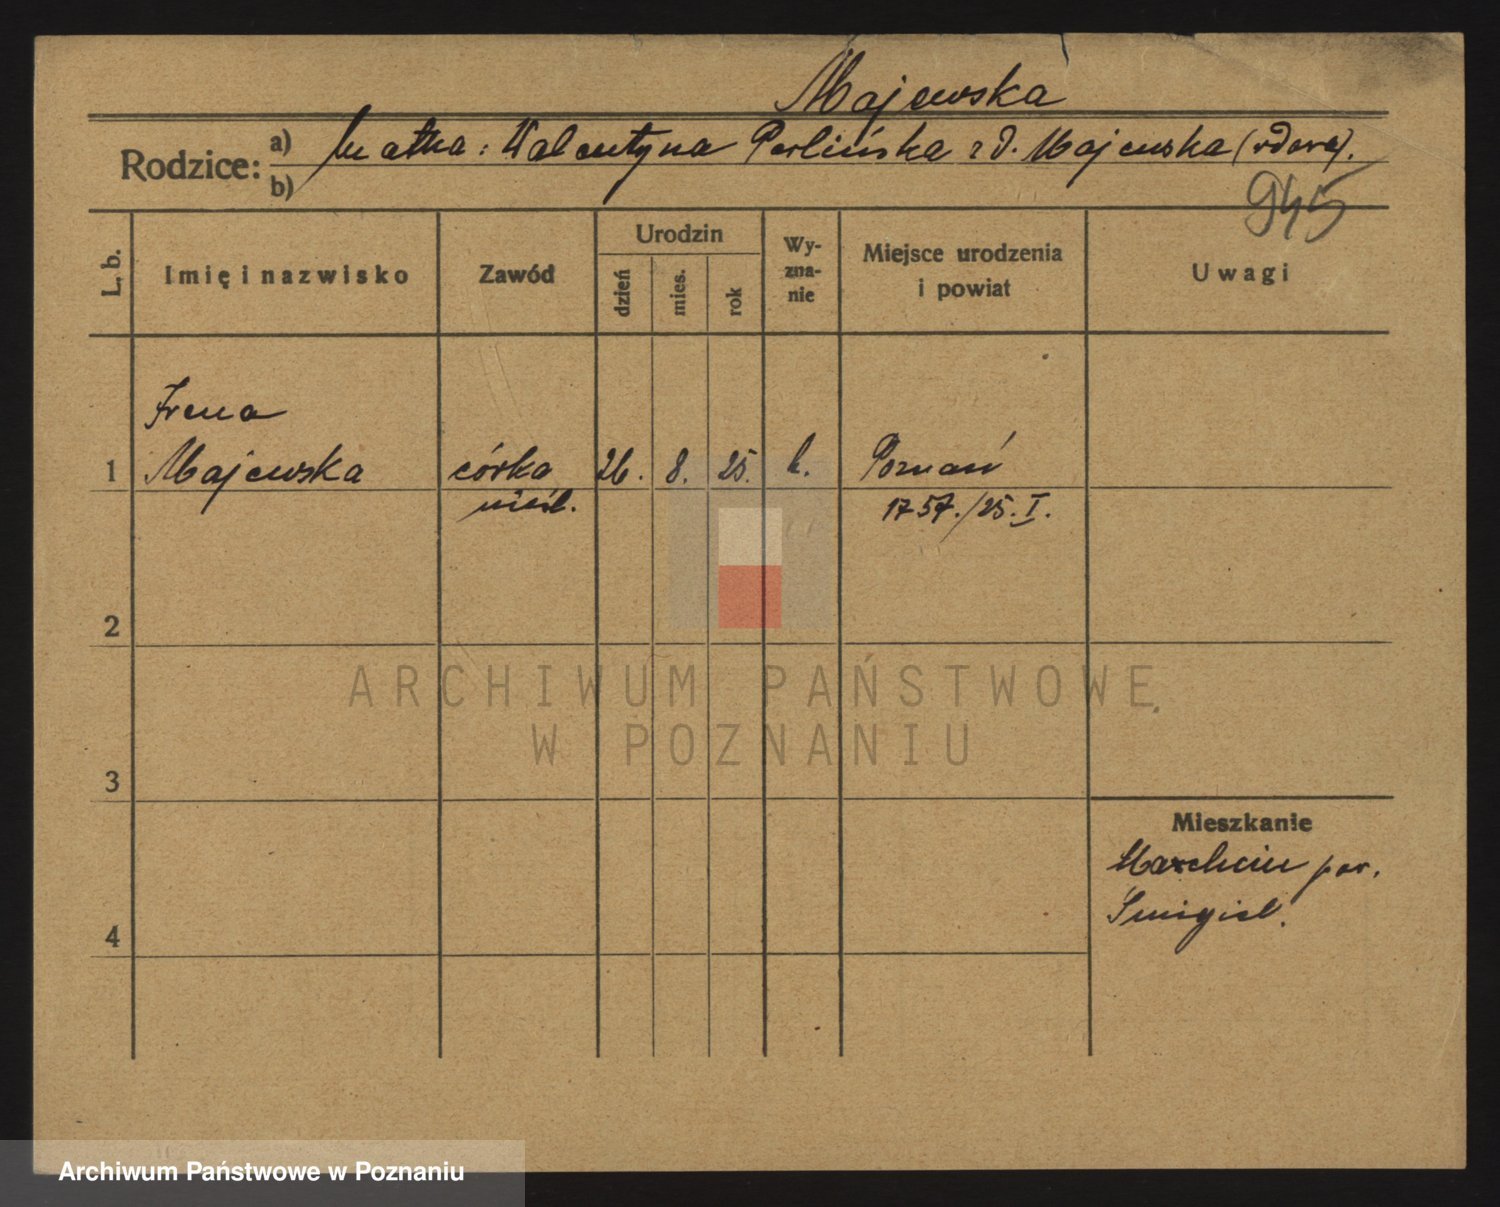 Majewska
Rodzice: a) matka: Walentyna Perlińska zd. Majewska (wdowa).
b)
945
L. b.
Imię i nazwisko
Zawód
Urodzin
dzień
mies.
rok
Wy-
zna-
nie
Miejsce urodzenia
i powiat
Uwagi
Irena
1 Majewska córka 26. 8. 25. k. Poznań
nieśl. 1757./25. I.
2
ARCHIWUM PAŃSTWOWE
W POZNANIU
3
Mieszkanie
pow.
Śmigiel.
4
Archiwum Państwowe w Poznaniu